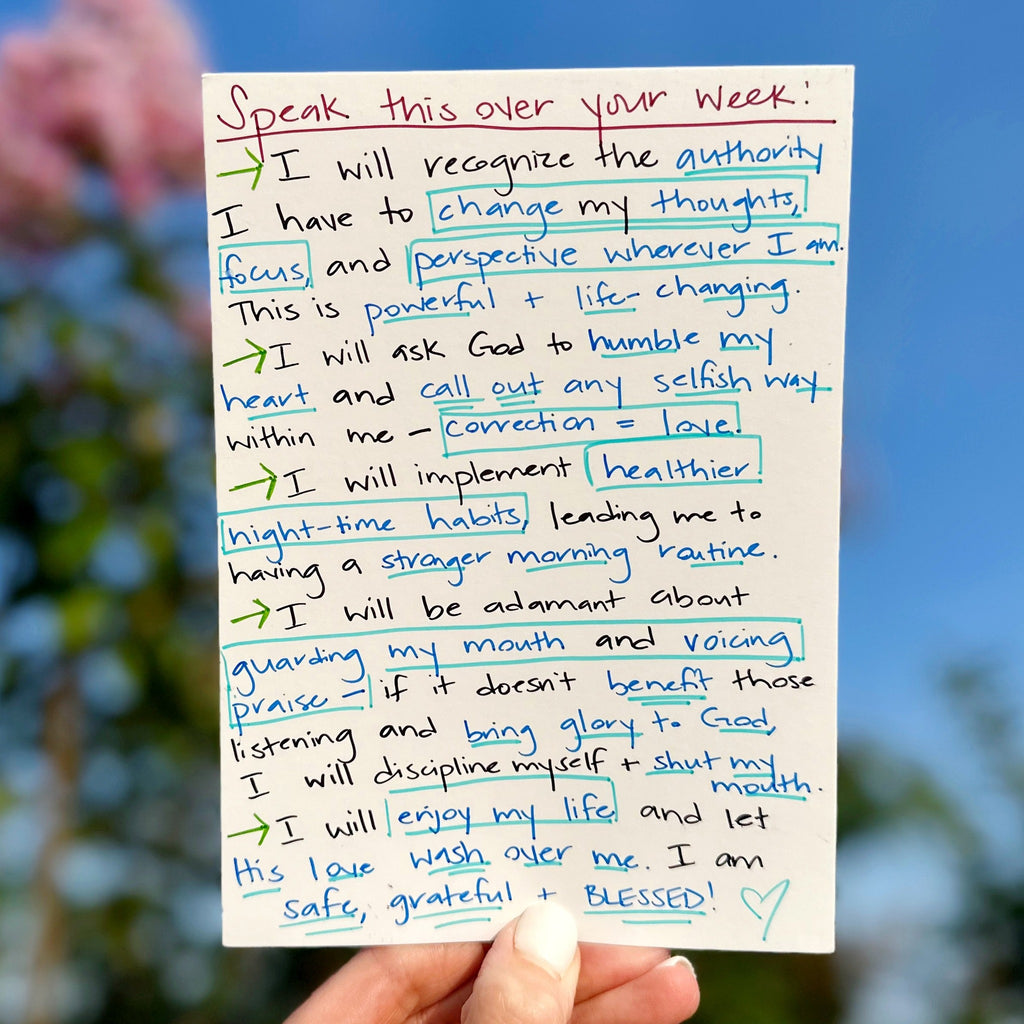 Speak this over your week:
→ I will recognize the authority
I have to change my thoughts,
focus, and perspective wherever I am.
This is powerful + life-changing.
→ I will ask God to humble my
heart and call out any selfish way
within me – correction = love.
→ I will implement healthier
night-time habits, leading me to
having a stronger morning routine.
→ I will be adamant about
guarding my mouth and voicing
praise – if it doesn't benefit those
listening and bring glory to God,
I will discipline myself + shut my
mouth.
→ I will enjoy my life and let
His love wash over me. I am
safe, grateful + BLESSED! ♡